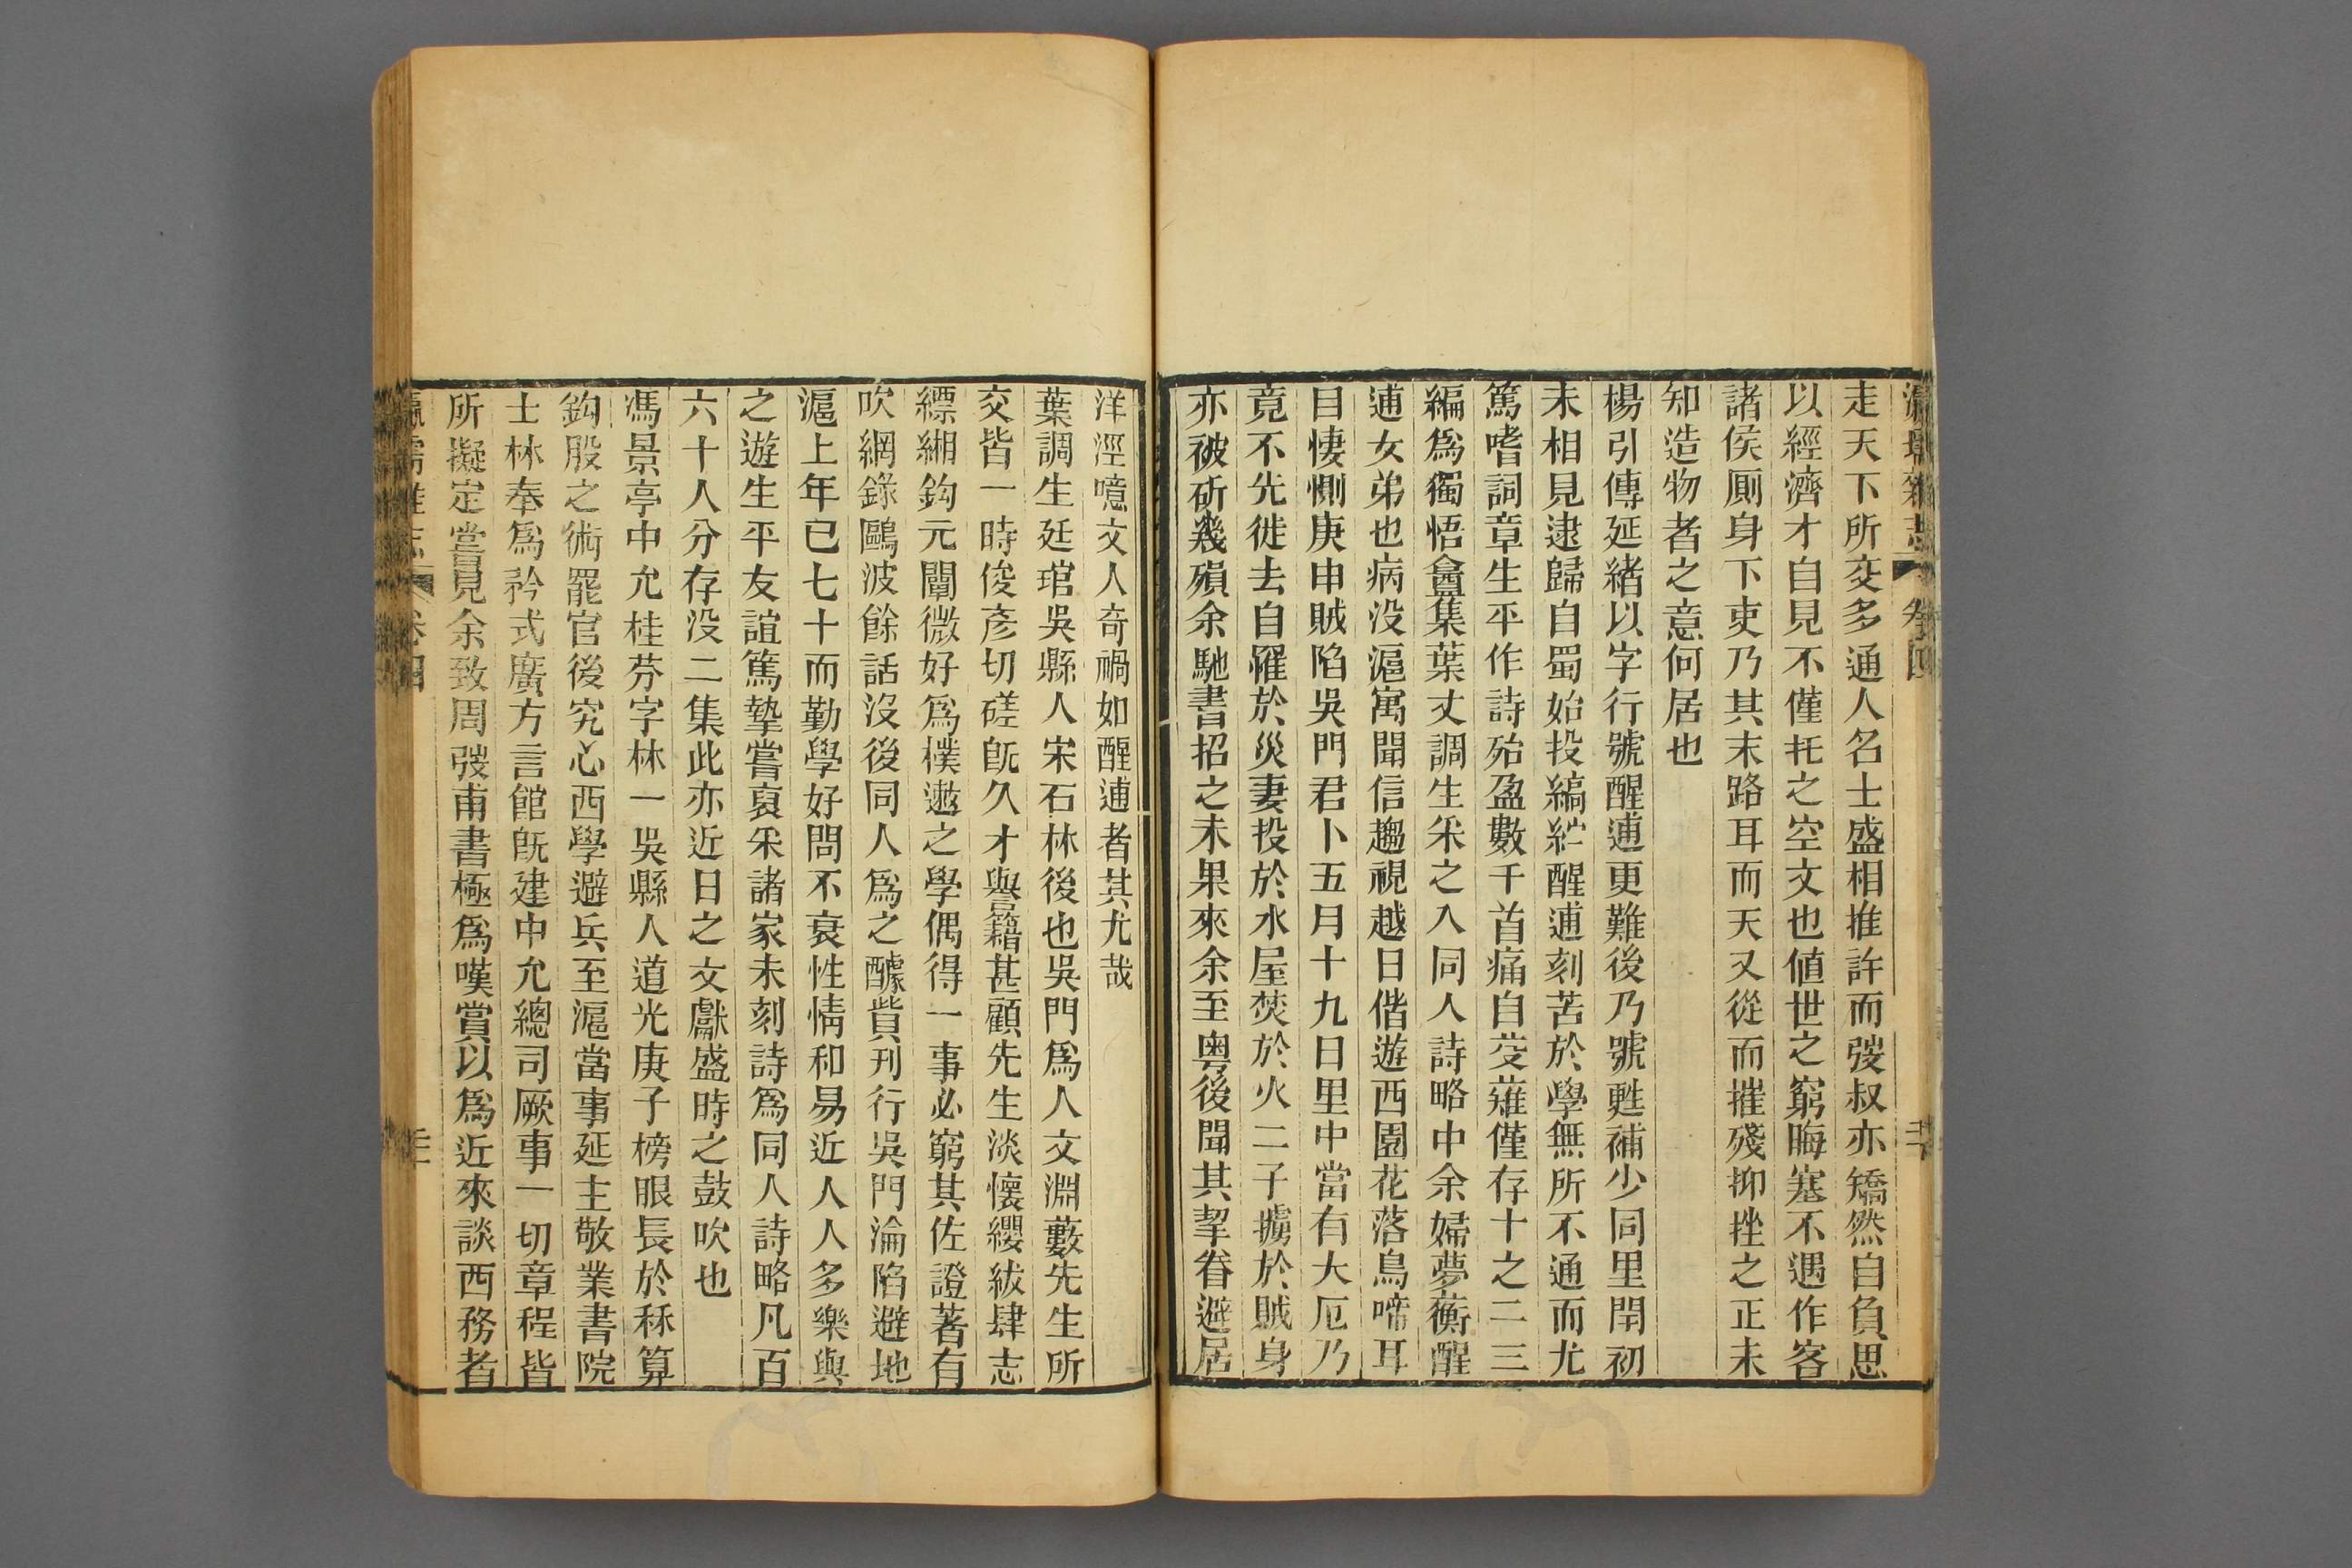 瀛壖雜志 卷四
走天下所交多通人名士盛相推許而弢叔亦矯然自負思
以經濟才自見不僅托之空文也値世之窮晦塞不遇作客
諸侯厠身下吏乃其末路耳而天又從而摧殘抑挫之正未
知造物者之意何居也
楊引傳延緒以字行號醒逋更難後乃號甦補少同里閈初
未相見逮歸自蜀始投縞紵醒逋刻苦於學無所不通而尤
篤嗜詞章生平作詩殆盈數千首痛自芟薙僅存十之二三
編爲獨悟盦集葉丈調生采之入同人詩略中余婦夢蘅醒
逋女弟也病没滬寓聞信趨視越日偕遊西園花落鳥啼耳
目悽惻庚申賊陷吳門君卜五月十九日里中當有大厄乃
竟不先徙去自罹於災妻投於水屋焚於火二子擄於賊身
亦被斫幾殞余馳書招之未果來余至粤後聞其挈眷避居
洋涇噫文人奇禍如醒逋者其尤哉
葉調生廷琯吳縣人宋石林後也吳門爲人文淵藪先生所
交皆一時俊彥切磋旣久才譽籍甚顧先生淡懷纓紱肆志
縹緗鈎元闡微好爲樸遬之學偶得一事必窮其佐證著有
吹網錄鷗波餘話沒後同人爲之醵貲刊行吳門淪陷避地
滬上年已七十而勤學好問不衰性情和易近人人多樂與
之遊生平友誼篤摯嘗裒采諸家未刻詩爲同人詩略凡百
六十人分存没二集此亦近日之文獻盛時之鼓吹也
馮景亭中允桂芬字林一吳縣人道光庚子榜眼長於秝算
鈎股之術罷官後究心西學避兵至滬當事延主敬業書院
士林奉爲矜式廣方言館旣建中允總司厥事一切章程皆
所擬定嘗見余致周弢甫書極爲嘆賞以爲近來談西務者
瀛壖雜志 卷四